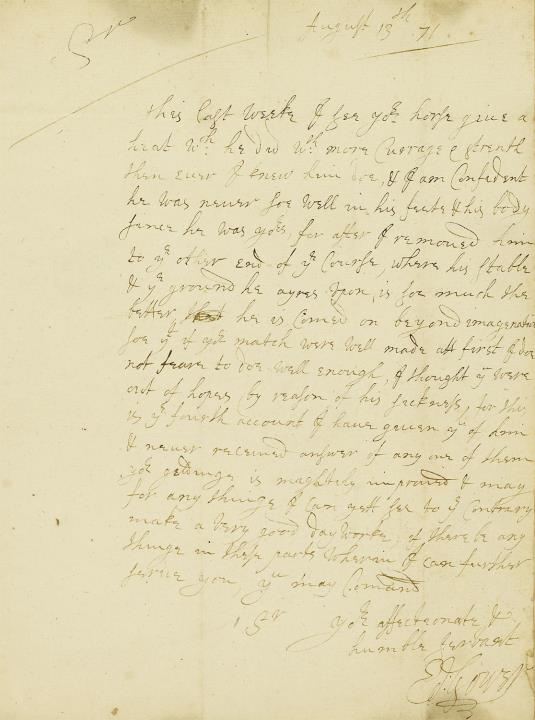 August 13th 71
Sr
this last weeke I see yor horse give a
heat wch he did wth more Currage & strenth
then ever I knew him doe, & I am Confident
he was never soe well in his feete & his body
since he was yors, for after I removed him
to ye other end of ye Course, where his stable
& ye ground he ayres upon, is soe much the
better, that he is comed on beyond imagenation
soe yt if yor match were well made att first I doe
not feare to doe well enough, I thought yu were
out of hopes by reason of his sickness, for this
is ye fourth account I have given yu of him
& never received answer of any one of them
yor geldinge is mightely improved & may
for any thinge I can yett see to ye Contrary
make a very good day worke, if there be any
thinge in these parts wherein I can further
serve you, yu may Comand
Sr yor affectionate &
humble servant